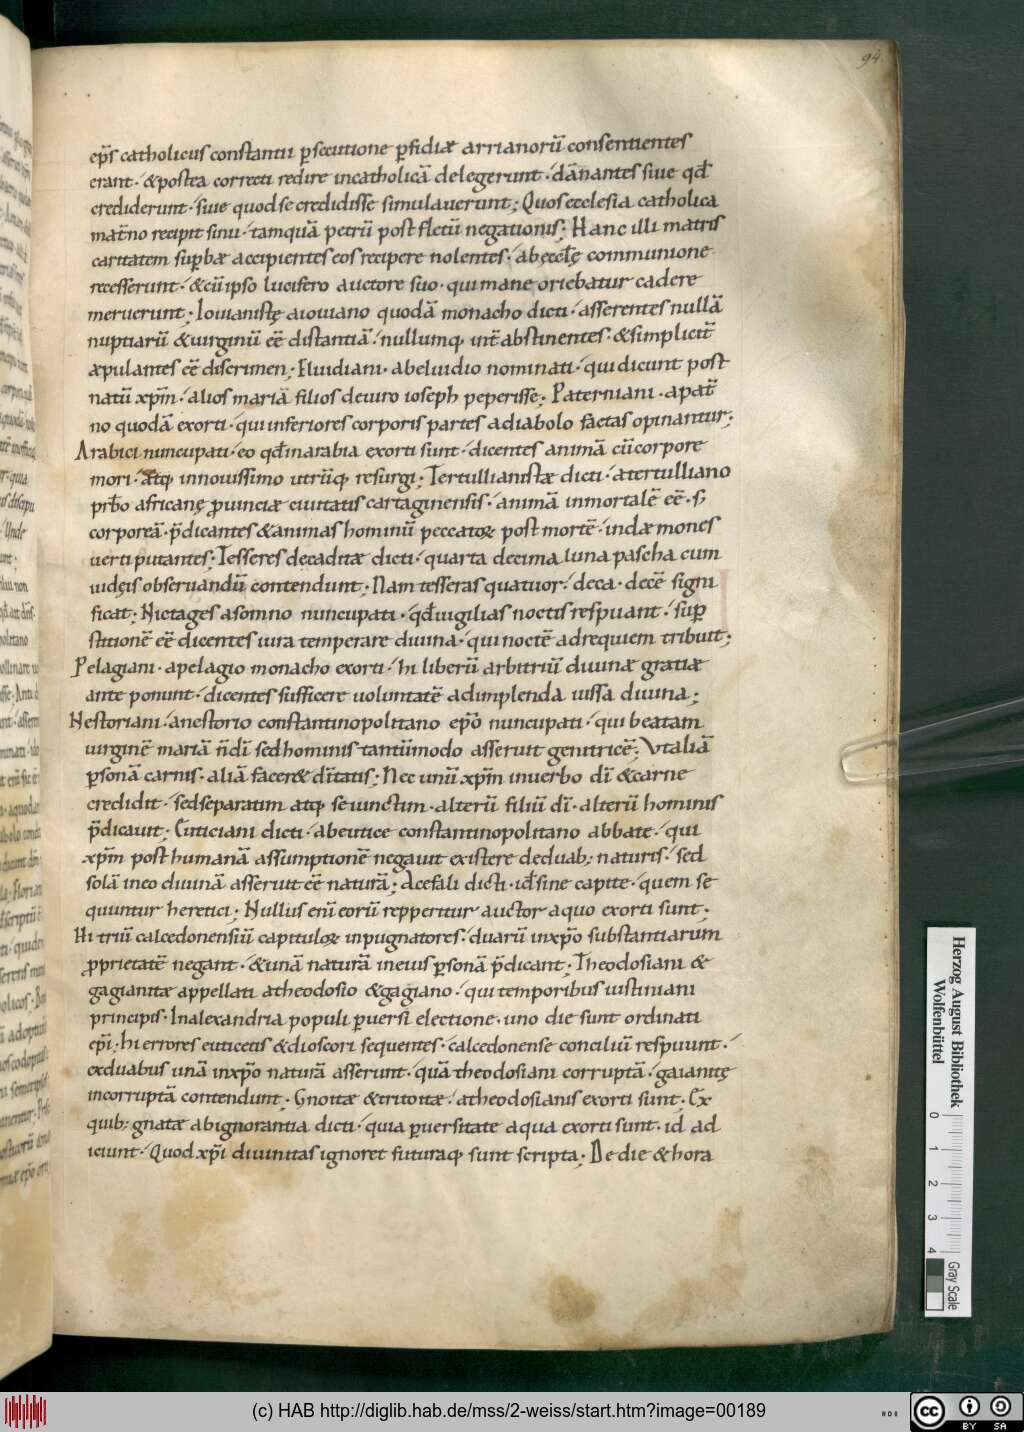 94
ep̄s catholicus constantii ꝑsecutione ꝑfidiæ arrianorū consentientes
erant · &postea correcti redire incatholicā delegerunt · dānantes siue qđ
crediderunt · siue quodse credidisse simulauerunt; Quos ecclesia catholica
mat̄no recipit sinu · tamquā petrū post fletū negationis; Hanc illi matris
caritatem suꝑbæ accipientes eos recipere nolentes · abęccl̄ę communione
recesserunt · &cū ipso lucifero auctore suo · qui mane oriebatur cadere
meruerunt; Iouianistę aiouiano quodā monacho dicti · asserentes nullā
nuptiarū &uirginū eē distantiā · nullumq int̄ abstinentes · &simplicit̄
æpulantes eē discrimen; Eluidiani · abeluidio nominati · qui dicunt post
natū xp̄m · alios mariā filios deuiro ioseph peperisse; Paterniani · apat̄
no quodā exorti · qui inferiores corporis partes adiabolo factas opinantur;
Arabici nuncupati · eo qđ inarabia exorti sunt · dicentes animā cū corpore
mori · atq innouissimo utrūq resurgi; Tertullianistæ dicti · atertulliano
prb̄o africanę ꝓuinciæ ciuitatis cartaginensis · animā inmortalē eē · s;
corporeā · p̄dicantes &animas hominū peccatoꝝ post mortē · indæmones
uerti putantes; Tesseres decaditæ dicti · quarta decima luna pascha cum
iudęis obseruandū contendunt; Nam tesseras quatuor · deca · decē signi
ficat; Nictages asomno nuncupati · qđ uigilias noctis respuant · suꝑ
stitionē eē dicentes iura temperare diuina · qui noctē adrequiem tribuit;
Pelagiani · apelagio monacho exorti · hi liberū arbitriū diuinæ gratiæ
ante ponunt · dicentes sufficere uoluntatē adimplenda iussa diuina;
Nestoriani · anestorio constantinopolitano ep̄o nuncupati · qui beatam
uirginē mariā n̄ dī sed hominis tantūmodo asseruit genitricē; Vt aliā
ꝑsonā carnis · aliā facer& dīt̄atis; Nec unū xp̄m inuerbo dī &carne
credidit · sed separatim atq seiunctim · alterū filiū dī · alterū hominis
p̄dicauit; Euticiani dicti · abeutice constantinopolitano abbate · qui
xp̄m post humanā assumptionē negauit existere deduab; naturis · sed
solā ineo diuinā asseruit eē naturā; Acefali dicti · id̄ sine capite · quem se
quuntur heretici; Nullus enī eorū repperitur auctor aquo exorti sunt;
Hi triū calcedonensiū capituloꝝ inpugnatores · duarū inxp̄o substantiarum
ꝓprietatē negant · &unā naturā ineius ꝑsonā p̄dicant; Theodosiani &
gagianitæ appellati atheodosio &gagiano · qui temporibus iustiniani
principis · Inalexandria populi ꝑuersi electione · uno die sunt ordinati
ep̄i; hi errores euticetis &dioscori sequentes · calcedonense conciliū respuunt ·
exduabus unā inxp̄o naturā asserunt · quā theodosiani corruptā · gaianitę
incorruptā contendunt; Gnoitæ &tritoitæ · atheodosianis exorti sunt; Ex
quib; gnatæ abignorantia dicti · quia ꝑuersitate aqua exorti sunt · id ad
iciunt · Quod xp̄i diuinitas ignoret futuraq sunt scripta; De die &hora
Herzog August Bibliothek
Wolfenbüttel
0 1 2 3 4
Gray Scale
(c) HAB http://diglib.hab.de/mss/2-weiss/start.htm?image=00189
cc BY SA